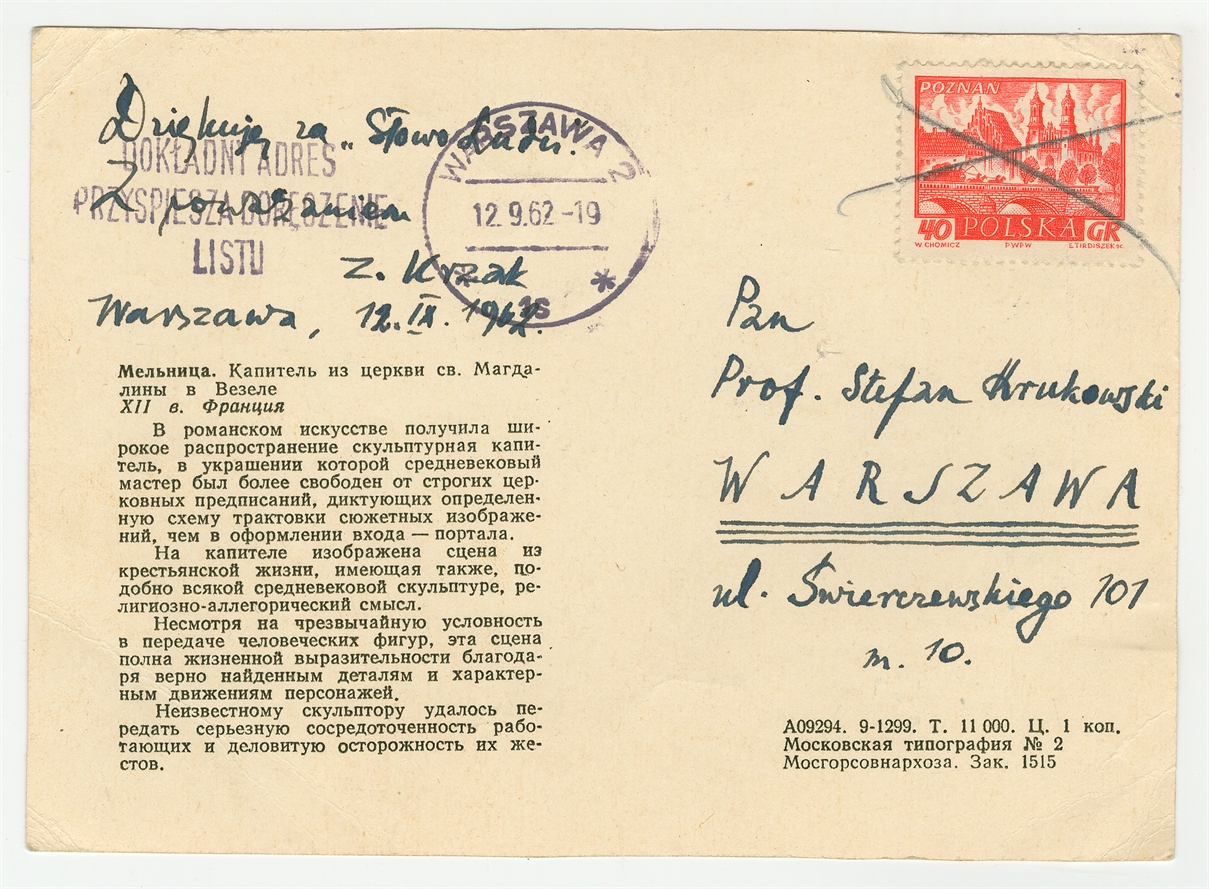 Dziękuję za „Słowo Ludu".
Z poważaniem
Z. Krzak
Warszawa, 12.IX.1962.
DOKŁADNY ADRES
PRZYSPIESZA DORĘCZENIE
LISTU
WARSZAWA 2
12.9.62-19
* *
POZNAŃ
40 POLSKA GR
W. CHOMICZ PWPW E.TIRDISZEK sc.
Pan
Prof. Stefan Krukowski
WARSZAWA
ul. Świerczewskiego 101
m. 10.
Мельница. Капитель из церкви св. Магда-
лины в Везеле
XII в. Франция
В романском искусстве получила ши-
рокое распространение скульптурная капи-
тель, в украшении которой средневековый
мастер был более свободен от строгих цер-
ковных предписаний, диктующих определен-
ную схему трактовки сюжетных изображе-
ний, чем в оформлении входа — портала.
На капителе изображена сцена из
крестьянской жизни, имеющая также, по-
добно всякой средневековой скульптуре, ре-
лигиозно-аллегорический смысл.
Несмотря на чрезвычайную условность
в передаче человеческих фигур, эта сцена
полна жизненной выразительности благода-
ря верно найденным деталям и характер-
ным движениям персонажей.
Неизвестному скульптору удалось пе-
редать серьезную сосредоточенность рабо-
тающих и деловитую осторожность их же-
стов.
А09294. 9-1299. Т. 11 000. Ц. 1 коп.
Московская типография № 2
Мосгорсовнархоза. Зак. 1515